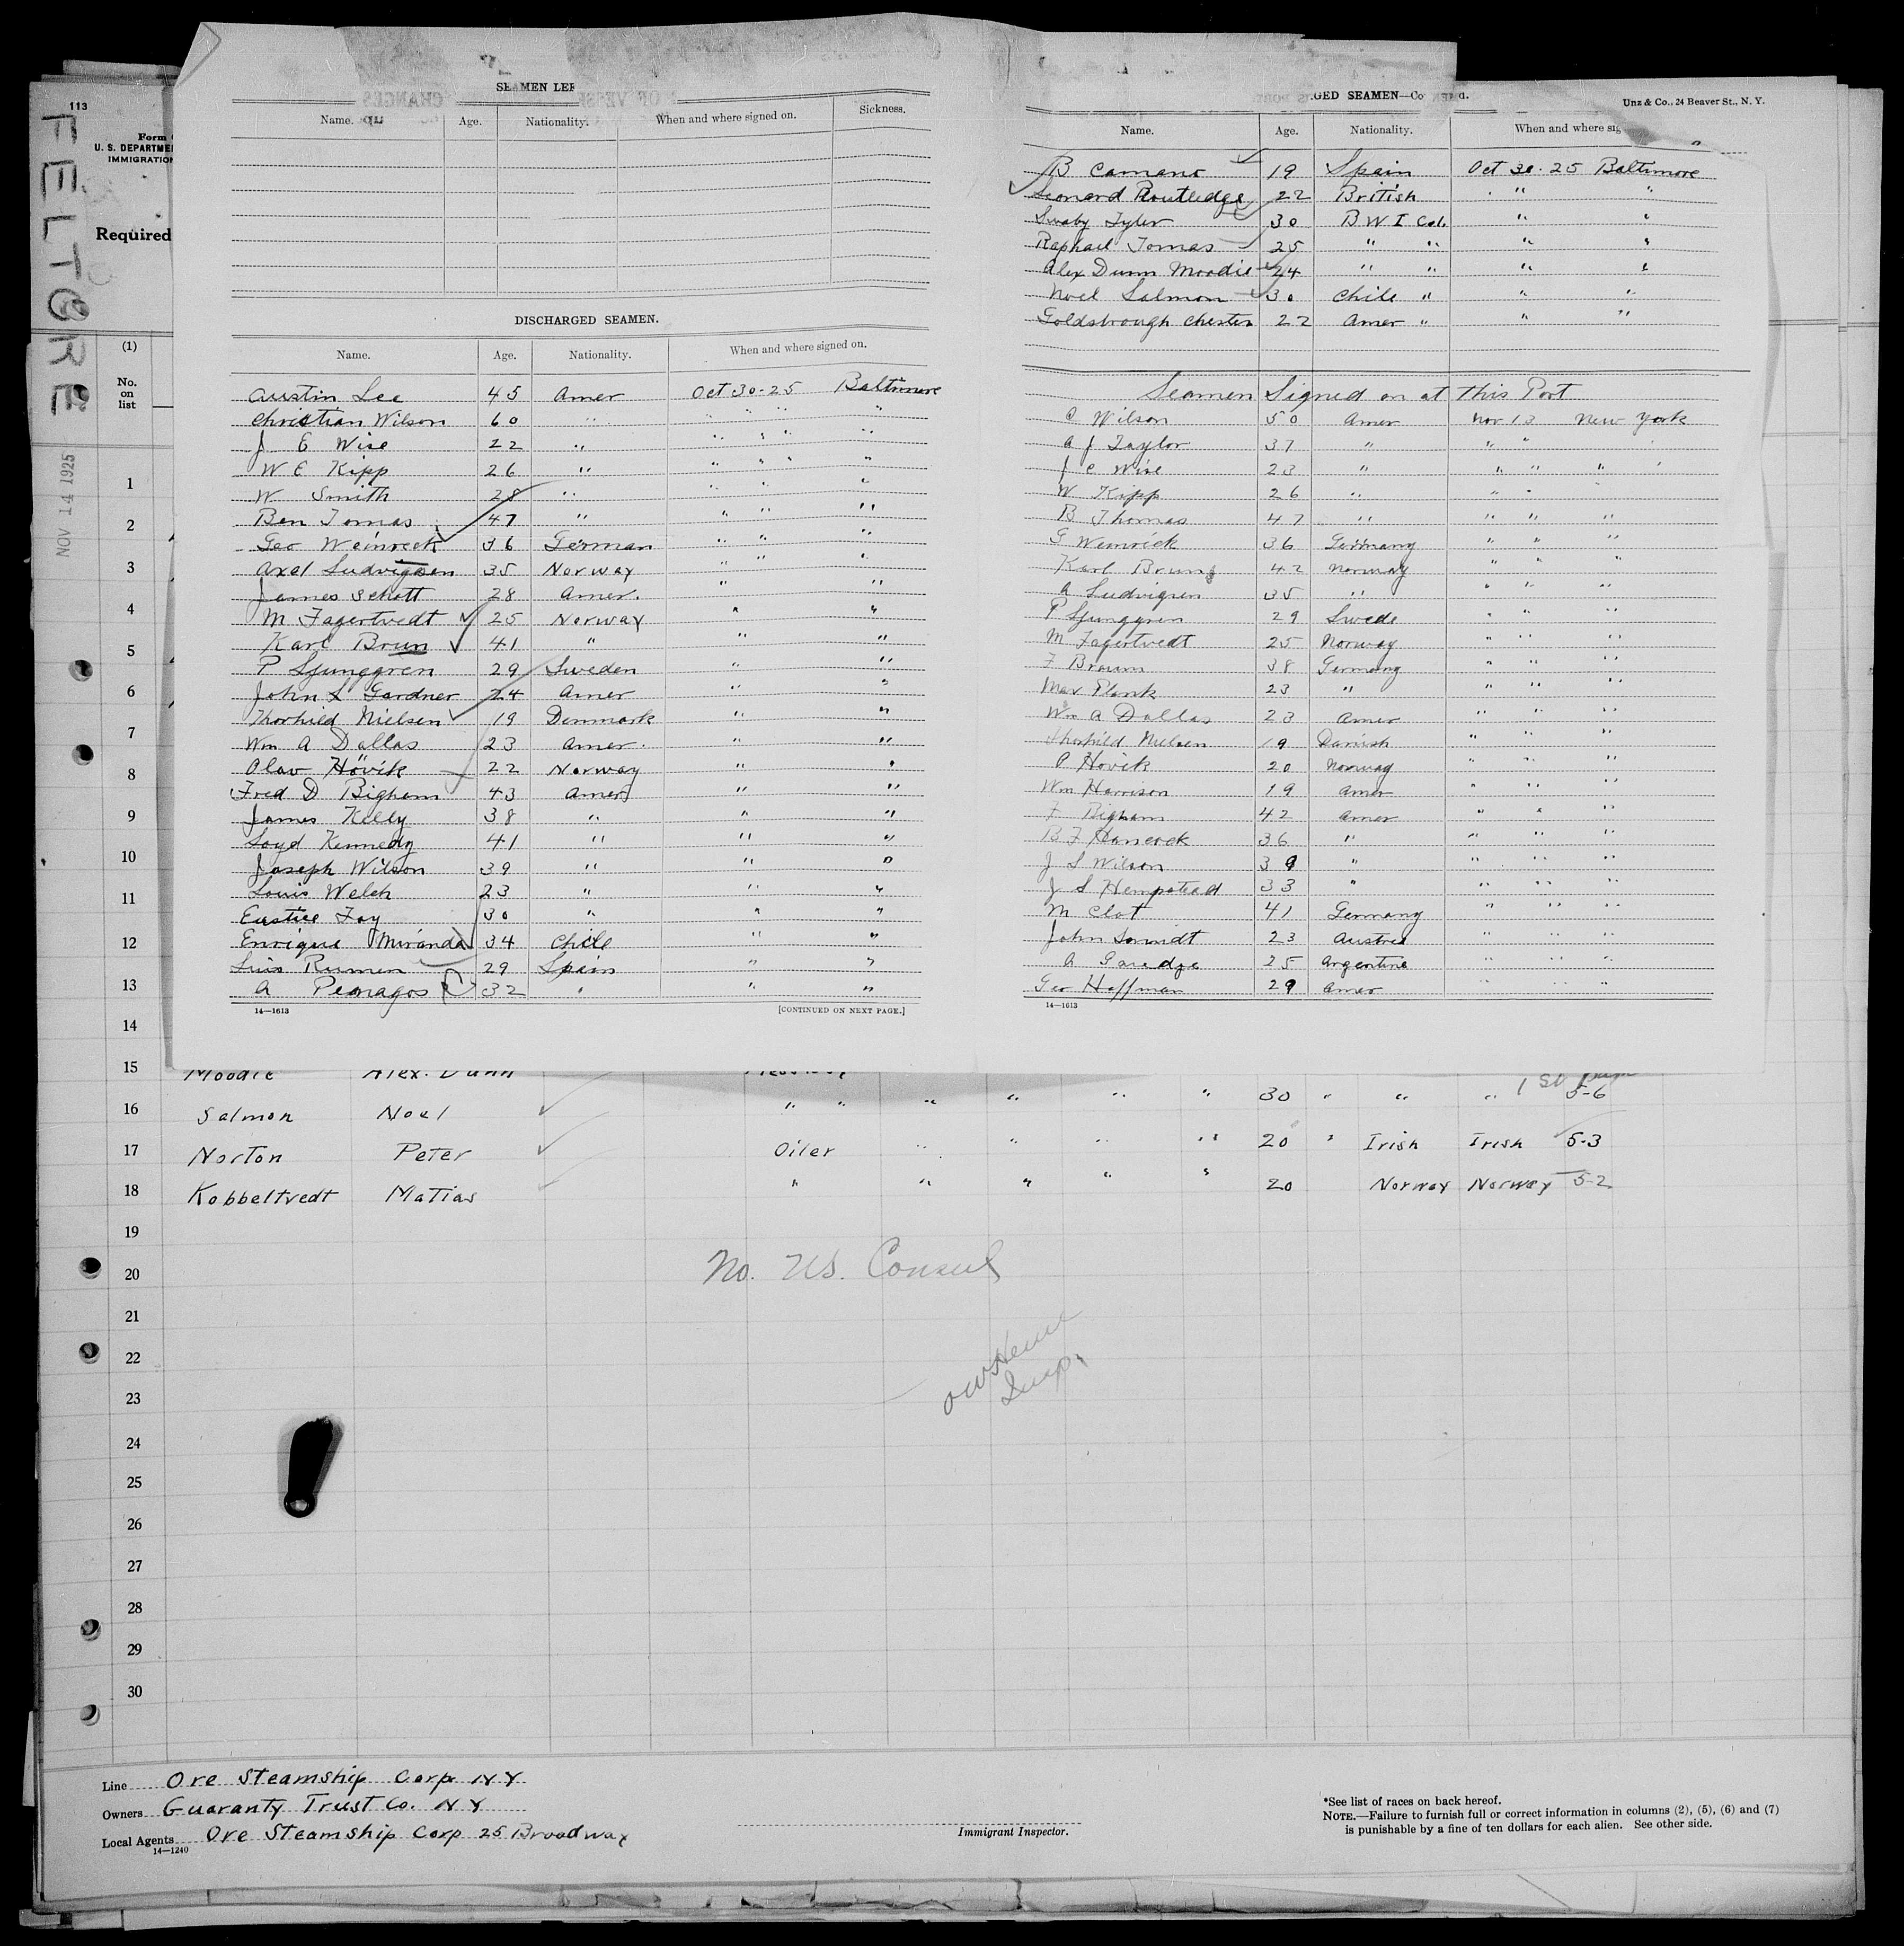 113
FELTORE
Form
U. S. DEPARTME
IMMIGRATION
Required
(1)
No.
on
list
NOV 14 1925
SEAMEN LEF
Name. Age. Nationality. When and where signed on. Sickness.
DISCHARGED SEAMEN.
Name. Age. Nationality. When and where signed on.
Austin Lee 45 Amer Oct 30-25 Baltimore
Christian Wilson 60 " " " " "
J E Wise 22 " " " " "
W E Kipp 26 " " " " "
W Smith 28 " " " "
Ben Tomas 47 " " " " "
Geo Weinreck 36 German " " " "
Axel Ludvigsen 35 Norway " " "
James Schott 28 Amer. " "
M Fagertvedt 25 Norway " "
Karl Brun 41 " " "
P Ljunggren 29 Sweden " "
John L Gardner 24 Amer " "
Thorhild Nielsen 19 Denmark " "
Wm A Dallas 23 Amer. " "
Olav Hövik 22 Norway " "
Fred D Bigham 43 Amer " "
James Kelly 38 " " "
Loyd Kennedy 41 " " "
Joseph Wilson 39 " " "
Louis Welch 23 " " "
Eustice Fay 30 " " "
Enrique Miranda 34 Chile " "
Luis Rumen 29 Spain " "
A Penagos 32 " " "
14—1613 [CONTINUED ON NEXT PAGE.]
GED SEAMEN—Co d.
Unz & Co., 24 Beaver St., N. Y.
Name. Age. Nationality. When and where sig
B Camano 19 Spain Oct 30-25 Baltimore
Leonard Routledge 22 British " "
Swaby Tyler 30 B W I Col. " "
Raphael Tomas 25 " " " "
Alex Dunn Moodie 24 " " " "
Noel Salmon 30 Chile " " "
Goldsbrough Chester 22 Amer " " "
Seamen Signed on at this Port
C Wilson 50 Amer Nov 13 New York
A J Taylor 37 " " "
J E Wise 23 " " " "
W Kipp 26 " " "
B Thomas 47 " " " "
G Weinrick 36 Germany " " "
Karl Brun 42 Norway " " "
A Ludvigsen 35 " " " "
P Ljunggren 29 Swede " " "
M Fagertvedt 25 Norway " " "
F Braum 38 Germany " " "
Max Plank 23 " " " "
Wm A Dallas 23 Amer " " "
Thorhild Nielsen 19 Danish " " "
O Hovik 20 Norway " " "
Wm Harrison 19 Amer " " "
F Bigham 42 Amer " " "
B F Hancock 36 " " " "
J S Wilson 39 " " " "
J S Hempstead 33 " " " "
M Clot 41 Germany " " "
John Smidt 23 Austria " " "
A Garedge 25 Argentine " " "
Geo Hoffman 29 Amer " " "
14—1613
1
2
3
4
5
6
7
8
9
10
11
12
13
14
15 Moodie Alex. Dunn
16 Salmon Noel " " " " " " 30 " " " 5-6
17 Norton Peter Oiler " " " " 20 " Irish Irish 5-3
18 Kobbeltvedt Matias " " " " " 20 Norway Norway 5-2
19
20
No. U.S. Consul
21
22
Insp.
23
24
25
26
27
28
29
30
Line Ore Steamship Corp NY
Owners Guaranty Trust Co. NY
Local Agents Ore Steamship Corp 25 Broadway
14—1240
Immigrant Inspector.
*See list of races on back hereof.
NOTE.—Failure to furnish full or correct information in columns (2), (5), (6) and (7)
is punishable by a fine of ten dollars for each alien. See other side.